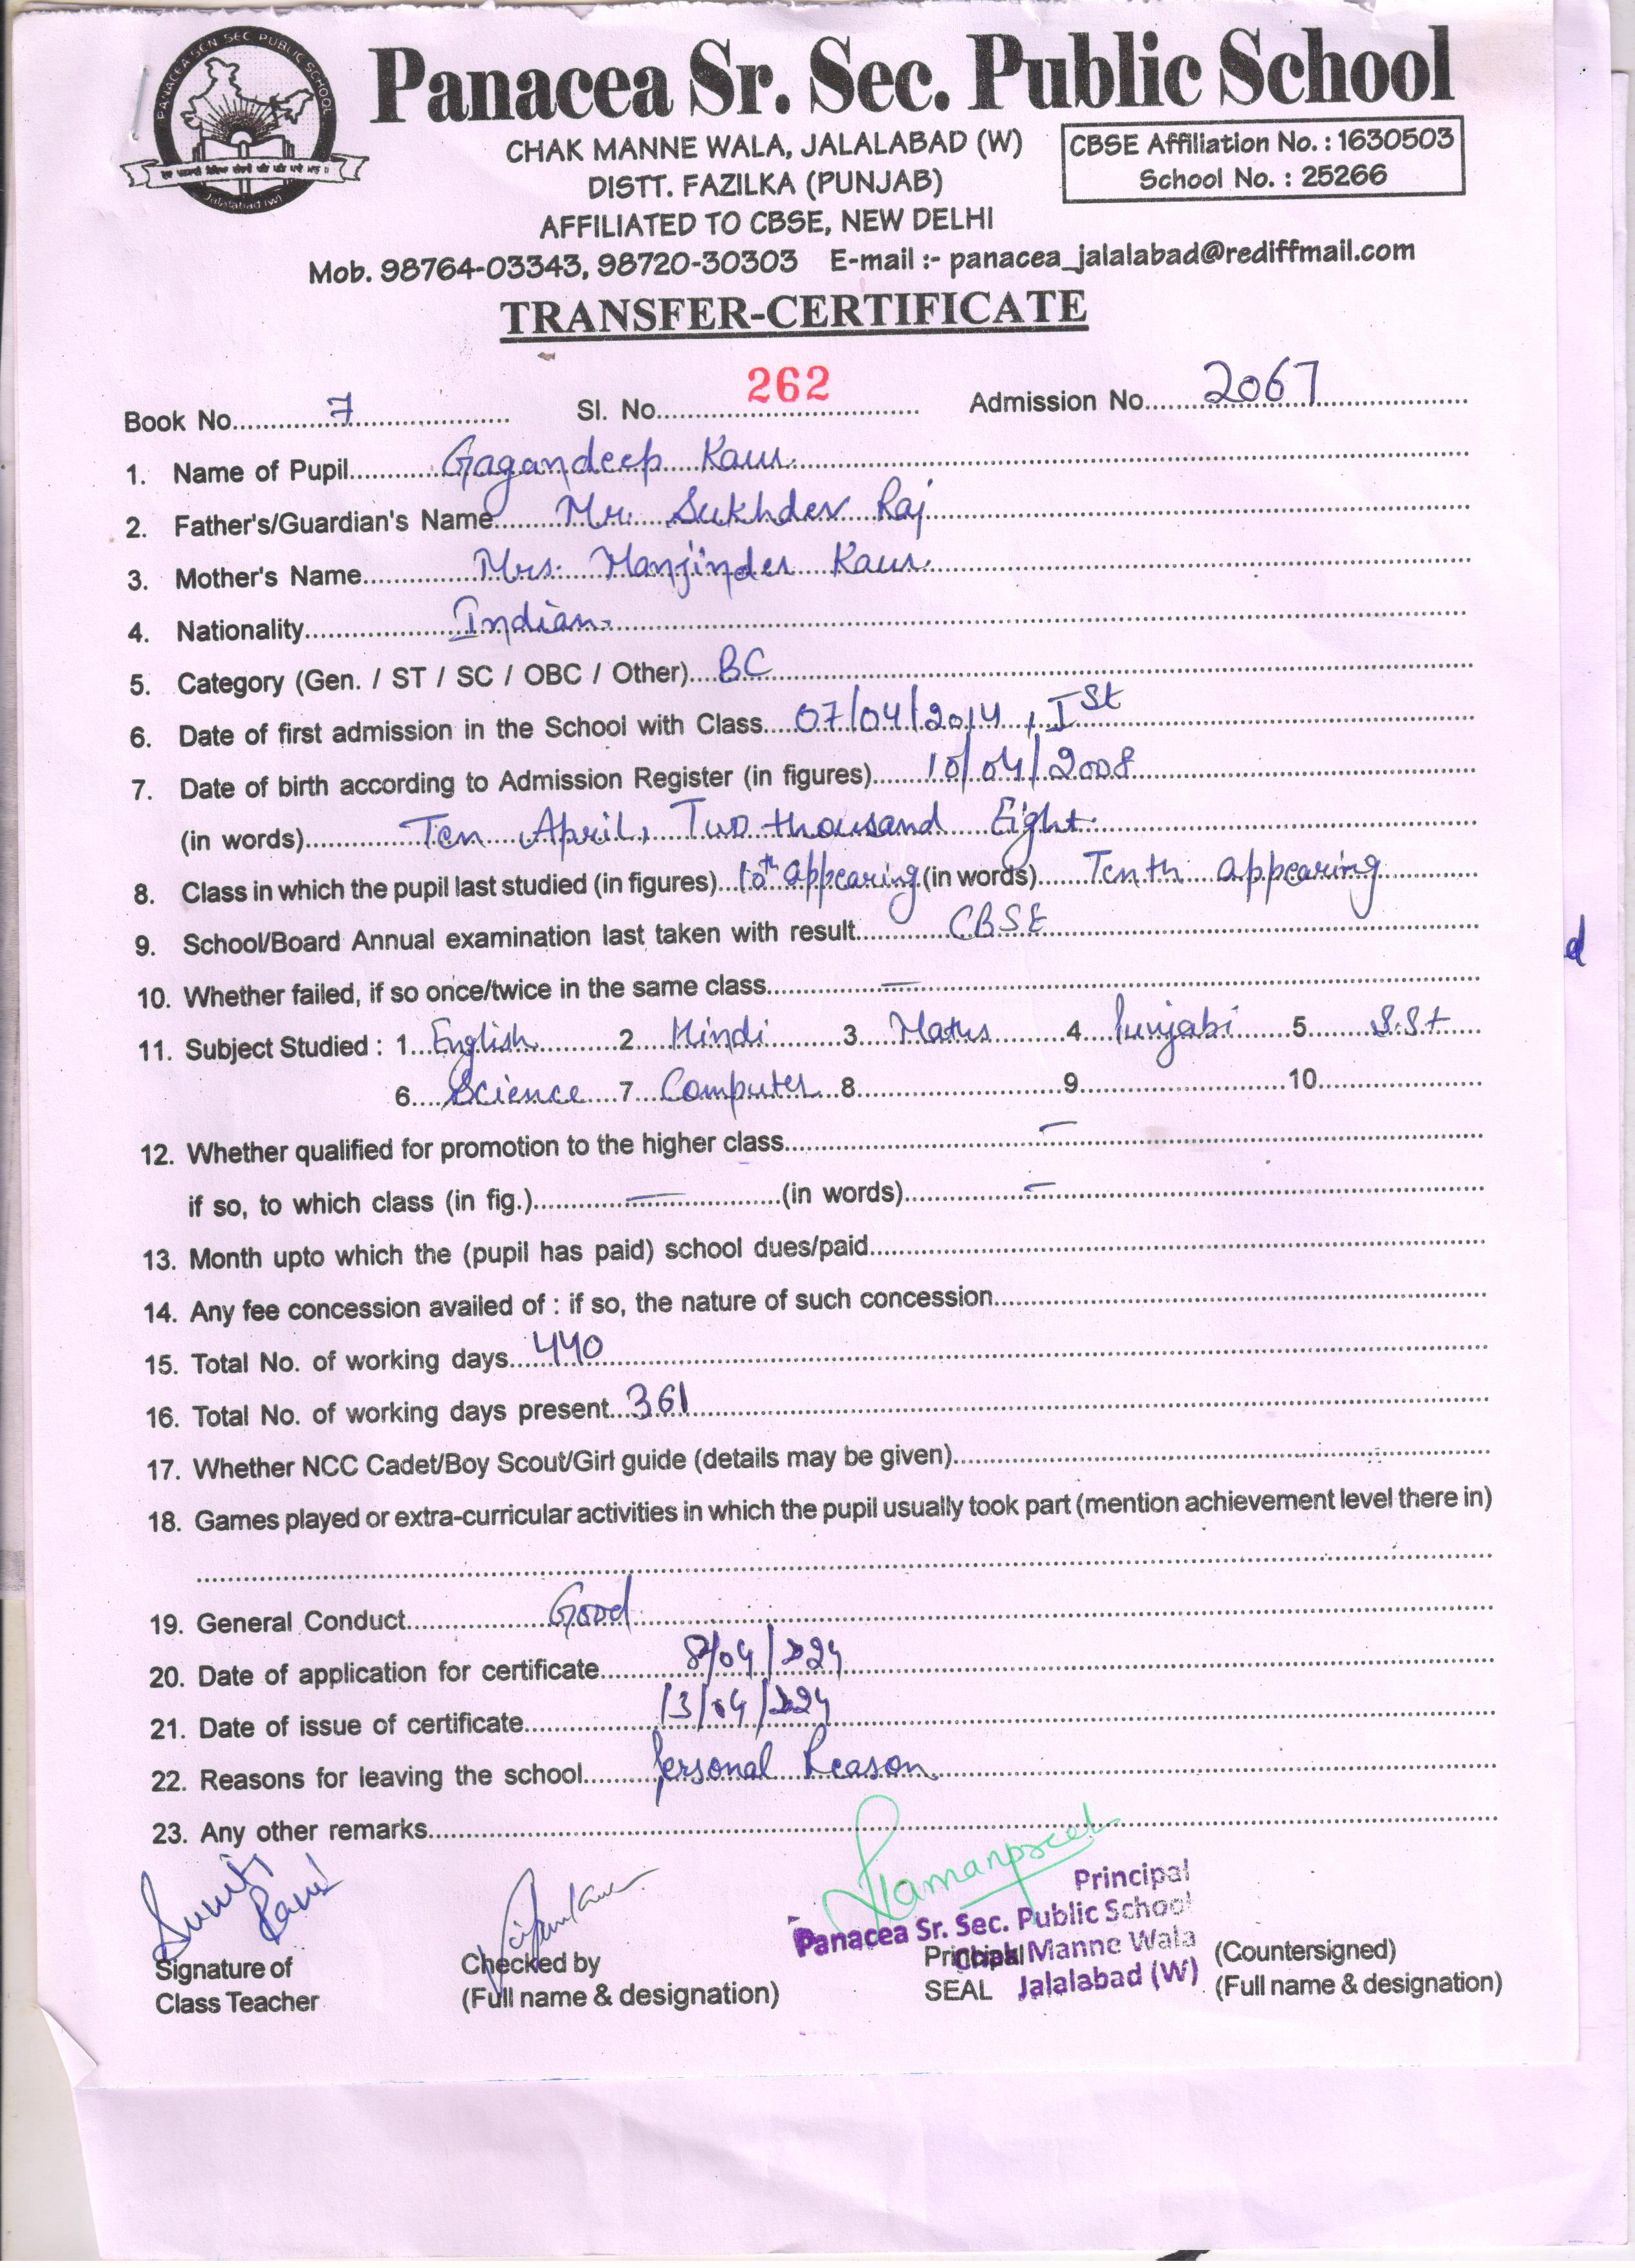 PANACEA SEN SEC PUBLIC SCHOOL
Jalalabad (W)
Panacea Sr. Sec. Public School
CHAK MANNE WALA, JALALABAD (W)
DISTT. FAZILKA (PUNJAB)
CBSE Affiliation No. : 1630503
School No. : 25266
AFFILIATED TO CBSE, NEW DELHI
Mob. 98764-03343, 98720-30303 E-mail :- panacea_jalalabad@rediffmail.com
TRANSFER-CERTIFICATE
Book No. 7 Sl. No. 262 Admission No. 2067
1. Name of Pupil Gagandeep Kaur.
2. Father's/Guardian's Name Mr. Sukhdev Raj
3. Mother's Name Mrs. Manjinder Kaur.
4. Nationality Indian.
5. Category (Gen. / ST / SC / OBC / Other) BC
6. Date of first admission in the School with Class 07/04/2014, Ist
7. Date of birth according to Admission Register (in figures) 10/04/2008
(in words) Ten April, Two thousand Eight.
8. Class in which the pupil last studied (in figures) 10th appearing (in words) Tenth appearing
9. School/Board Annual examination last taken with result CBSE
10. Whether failed, if so once/twice in the same class —
11. Subject Studied : 1 English 2 Hindi 3 Maths 4 Punjabi 5 S.St
6 Science 7 Computer 8 9 10
12. Whether qualified for promotion to the higher class —
if so, to which class (in fig.) — (in words) —
13. Month upto which the (pupil has paid) school dues/paid
14. Any fee concession availed of : if so, the nature of such concession
15. Total No. of working days 440
16. Total No. of working days present 361
17. Whether NCC Cadet/Boy Scout/Girl guide (details may be given)
18. Games played or extra-curricular activities in which the pupil usually took part (mention achievement level there in)
19. General Conduct Good
20. Date of application for certificate 8/04/2024
21. Date of issue of certificate 13/04/2024
22. Reasons for leaving the school Personal Reason
23. Any other remarks
Sunita Rani
Ramanpreet
Principal
Panacea Sr. Sec. Public School
Chak Manne Wala
Jalalabad (W)
Signature of
Class Teacher
Checked by
(Full name & designation)
Principal
SEAL
(Countersigned)
(Full name & designation)
d